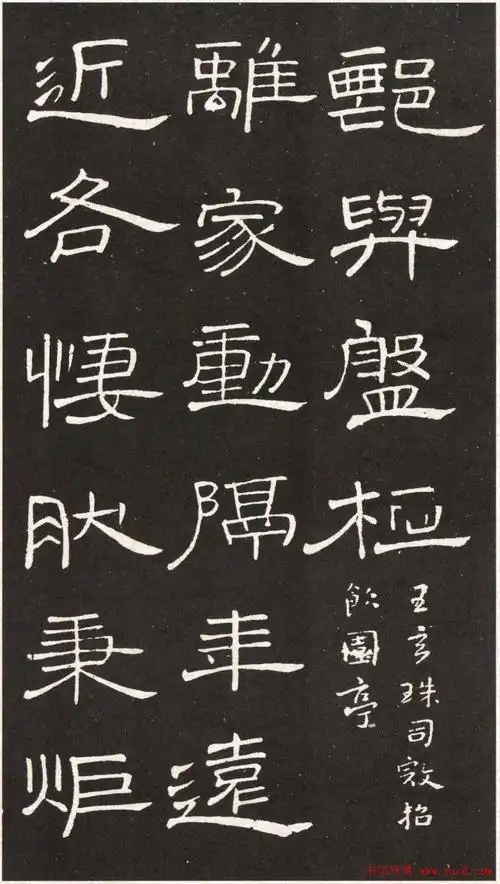 與盤桓
王玄珠司招
飲園亭
離家動隔年遠
近各悽秉炬